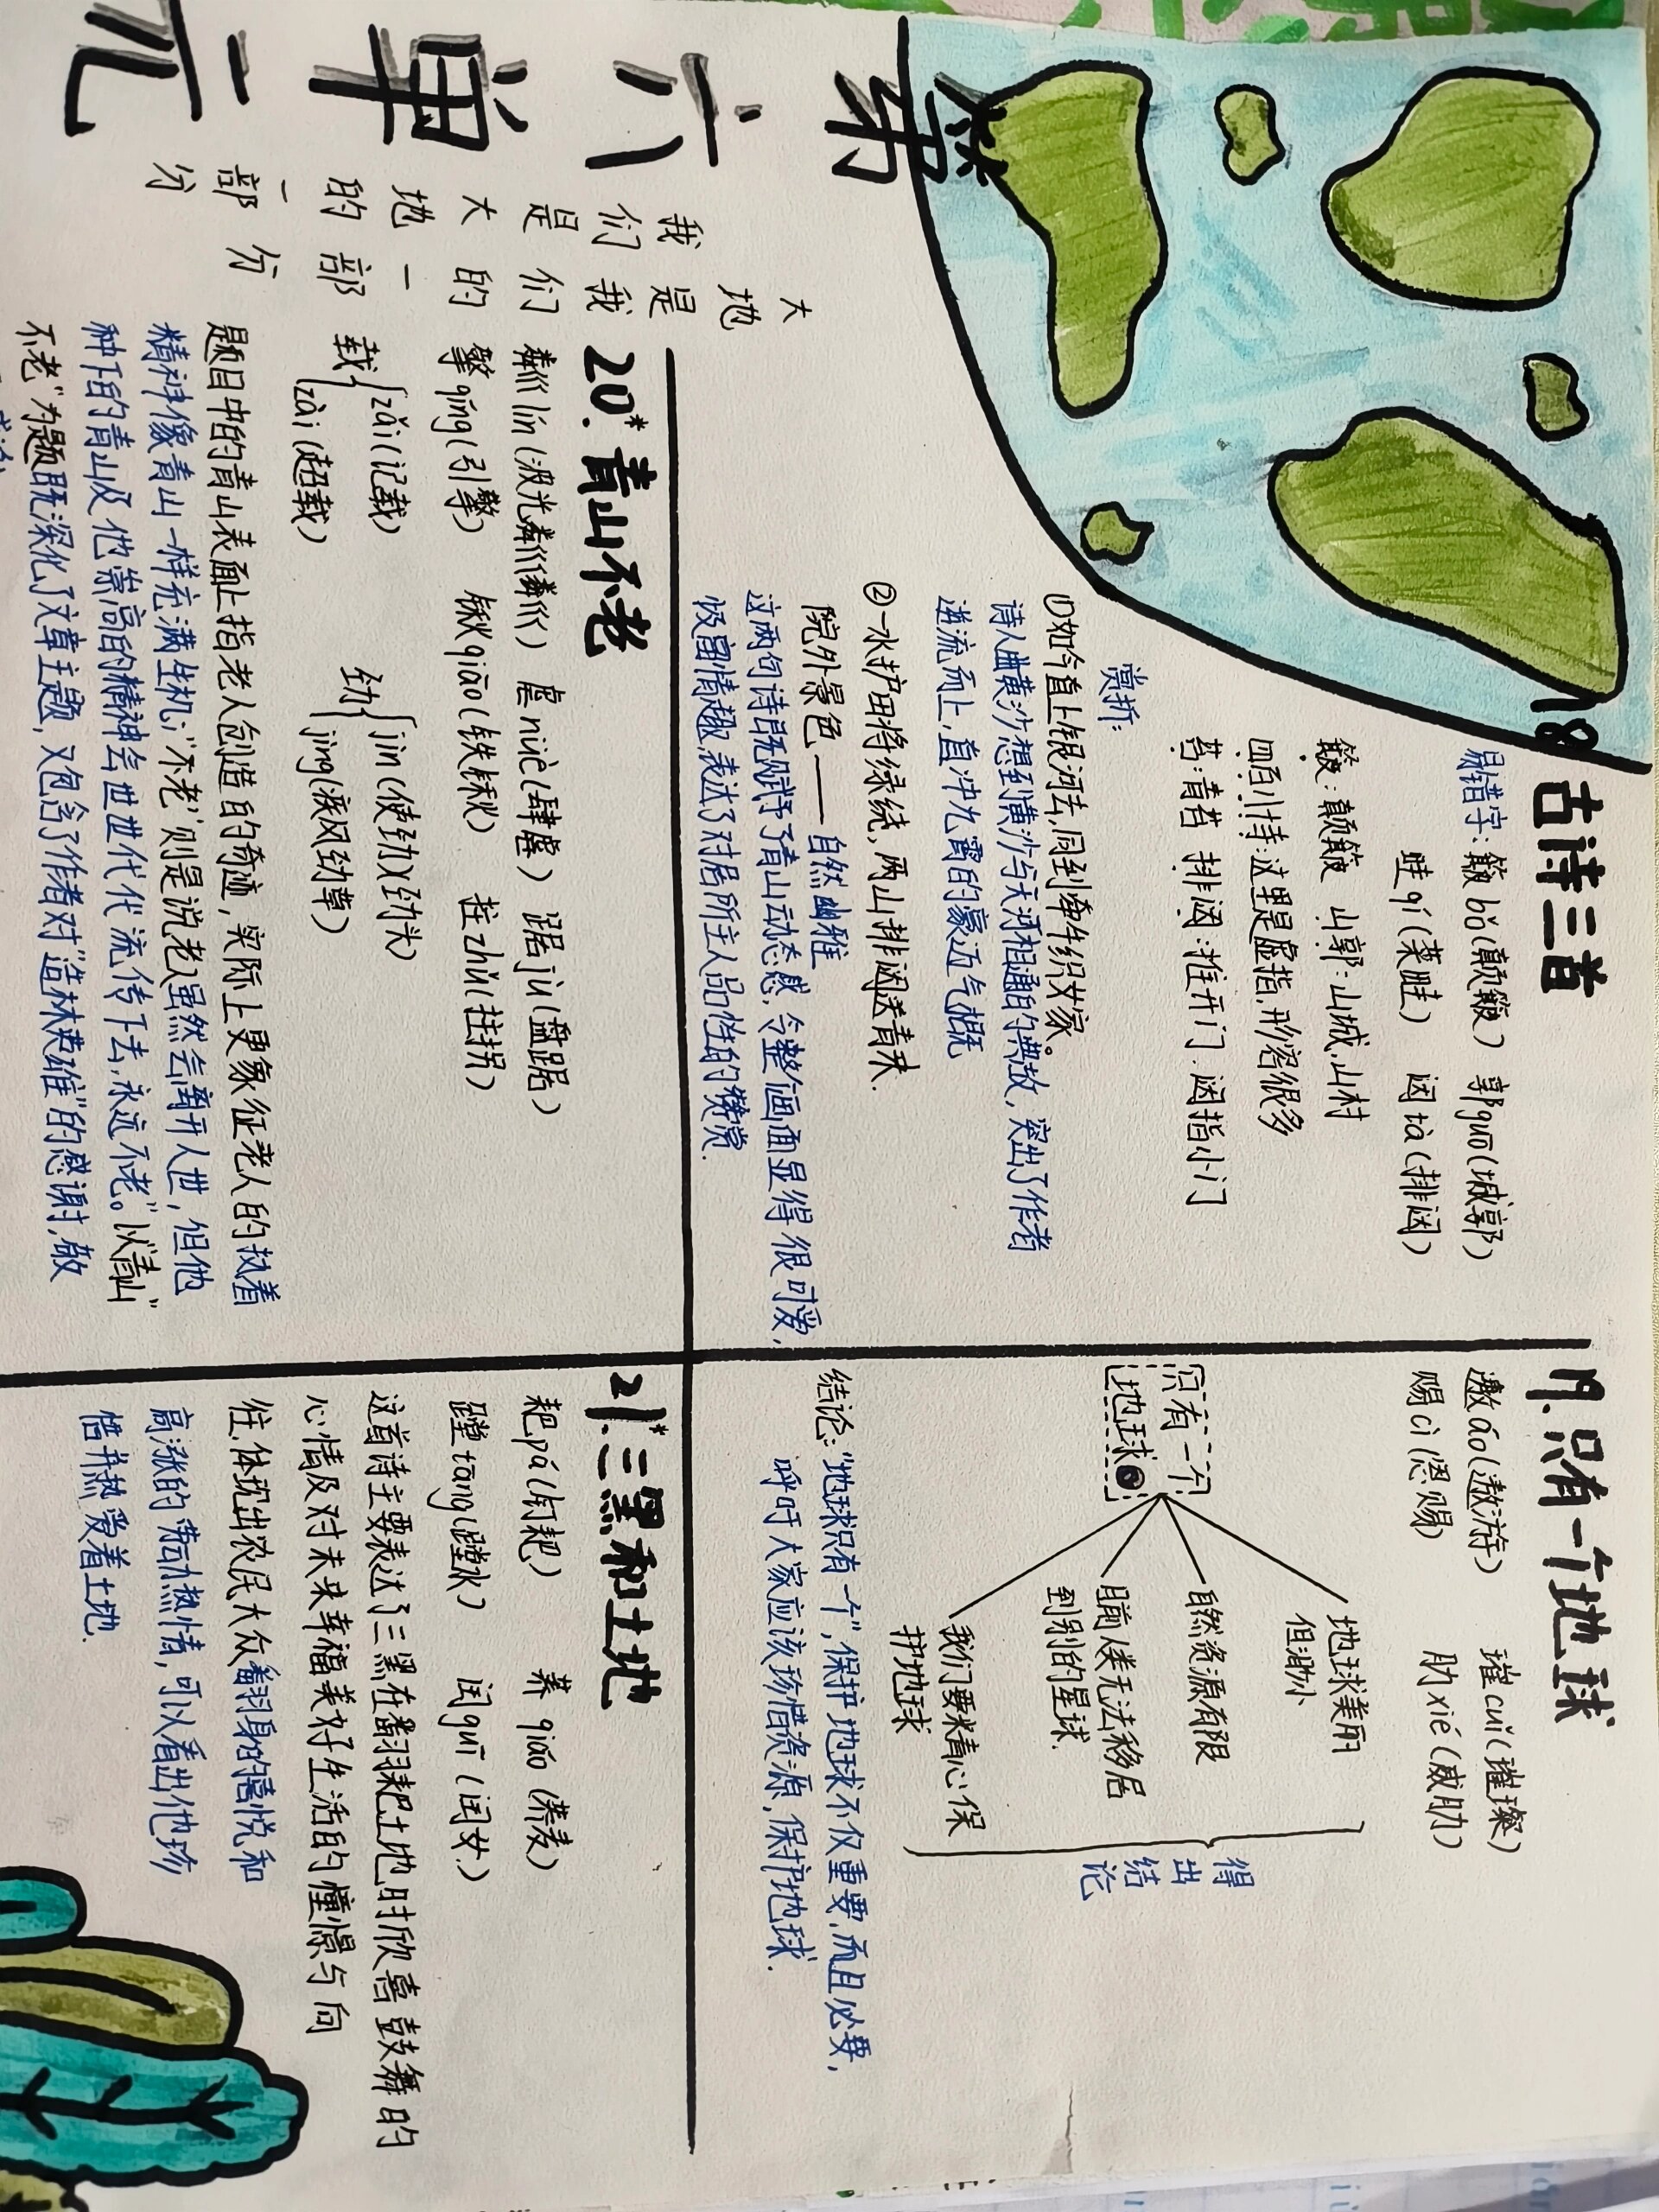 第六单元
大地是我们的一部分
我们是大地的一部分
18 古诗三首
易错字:簸bǒ(颠簸) 郭guō(城郭)
畦qí(菜畦) 闼tà(排闼)
簸:颠簸 山郭:山城,山村
四百小时:这里是虚指,形容很多
苔:青苔 排闼:推开门.闼指小门
赏折:
①如今直上银河去,同到牵牛织女家。
诗人由黄沙想到黄沙与天河相通的典故,突出了作者
逆流而上,直冲九霄的豪迈气概
②一水护田将绿绕,两山排闼送青来.
院外景色——自然幽雅
这两句诗既赋予了青山动态感,令整个画面显得很可爱,
极富情趣,表达了对居所主人品性的赞赏.
19.只有一个地球
遨áo(遨游) 璀cuǐ(璀璨)
赐cì(恩赐) 胁xié(威胁)
只有一个
地球
地球美丽
但渺小
自然资源有限
目前人类无法移居
到别的星球.
我们要精心保
护地球
得出结论
结论:“地球只有一个”,保护地球不仅重要,而且必要,
呼吁大家应该珍惜资源,保护地球.
20.*青山不老
粼lín(波光粼粼) 虐nüè(肆虐) 踞jù(盘踞)
擎qíng(引擎) 锹qiāo(铁锹) 拄zhǔ(拄拐)
载{zǎi(记载) 劲{jìn(使劲)(劲头)
zài(超载) jìng(疾风劲草)
题目中的青山表面上指老人创造的奇迹,实际上更象征老人的执着
精神像青山一样充满生机;“不老”则是说老人虽然会离开人世,但他
种下的青山及他崇高的精神会世世代代流传下去,永远不老。“以“青山
不老”为题既深化了文章主题,又包含了作者对“造林英雄”的感谢,敬
21.*三黑和土地
耙pá(钉耙) 荞qiáo(荞麦)
蹚tāng(蹚水) 闺guī(闺女)
这首诗主要表达了三黑在翻耙土地时欣喜鼓舞的
心情及对未来幸福美好生活的憧憬与向
往,体现出农民大众翻身的喜悦和
高涨的劳动热情,可以看出他珍
惜并热爱着土地.